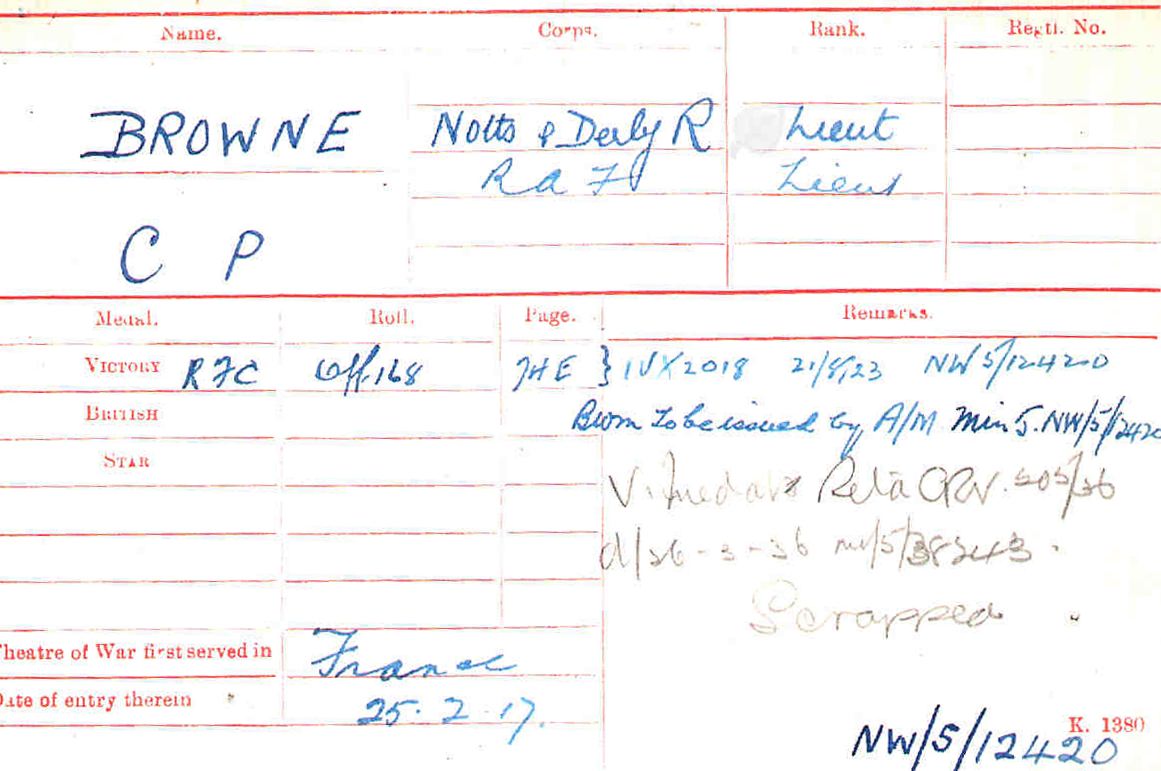 Name. Corps. Rank. Regtl. No.
BROWNE Notts & Derby R Lieut
R a F Lieut
C P
Medal. Roll. Page. Remarks.
VICTORY RFC Off.168 74E } IVX2018 21/8/23 NW/5/12420
BRITISH BWM to be issued by A/M Min 5. NW/5/12420
STAR V. medal Retd 505/36
d/26-3-36 nw/5/38243.
Scrapped
Theatre of War first served in France
Date of entry therein 25.2.17.
K. 1380
NW/5/12420